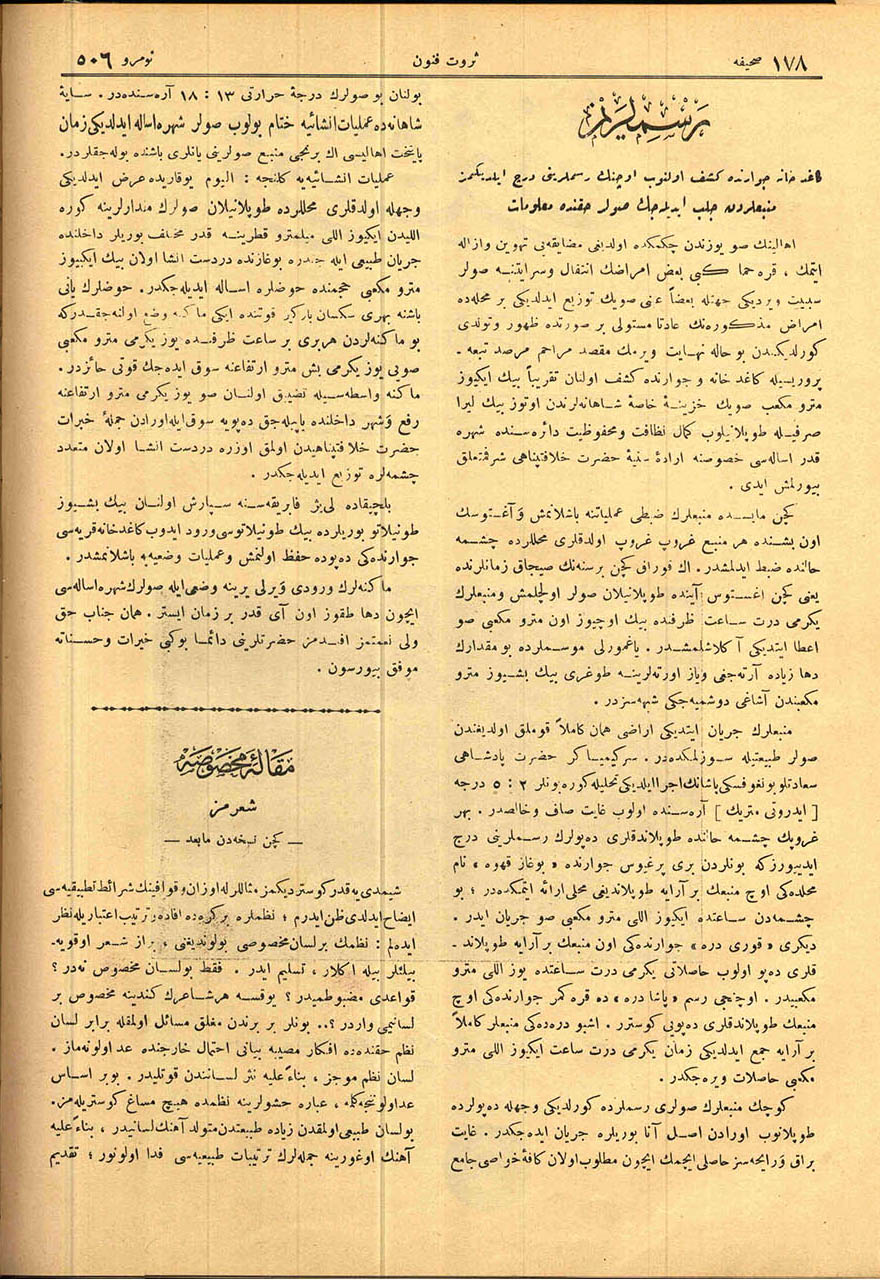 صحیفه ١٧٨
ثروت فنون
نومرو ٥٠٦
رسملریمز
كاغدخانه جوارنده كشف اولنوب اوچنك رسملرینی درج ایلدیكمز
منبعلردن جلب ایدیله جك صولر حقنده معلومات
اهالینك صو یوزندن چكمكده اولدیغی مضایقه یی تهوین وازاله
ایتمك ، قره حما كبی بعض امراضك انتقال وسرایتنه صولر
سببیت ویردیكی جهتله بعضاً عنی صویك توزیع ایدلدیكی بر محله ده
امراض مذكوره نك عادتا مستولی بر صورتده ظهور وتولدی
كورلدیكندن بو حاله نهایت ویرمك مقصد مراحم مرصد تبعه ـ
پروریسیله كاغد خانه و جوارنده كشف اولنان تقریباً بیك ایكیوز
مترو مكعب صویك خزینهٔ خاصهٔ شاهانه لرندن اوتوز بیك لیرا
صرفیله طوپلانیلوب كمال نظافت ومحفوظیت دائره سنده شهره
قدر اساله سی خصوصنه ارادهٔ سنیهٔ حضرت خلافتپناهی شرفتعلق
بیورلمش ایدی .
كچن مایسده منبعلرك ضبطی عملیاتنه باشلانمش وآغستوسك
اون بشنده هر منبع غروپ غروپ اولدقلری محللرده چشمه
حالنده ضبط ایدلمشدر . اك قوراق كچن برسنه نك صیجاق زمانلرنده
یعنی كچن اغستوس آینده طوپلانیلان صولر اولچلمش ومنبعلرك
یكرمی درت ساعت ظرفنده بیك اوچیوز اون مترو مكعبی صو
اعطا ایتدیكی آكلاشلمشدر . یاغمورلی موسملرده بو مقدارك
دها زیاده آرته جغی ویاز اورته لرینه طوغری بیك بشیوز مترو
مكعبندن آشاغی دوشمیه جكی شبهه سزدر .
منبعلرك جریان ایتدیكی اراضی همان كاملاً قوملق اولدیغندن
صولر طبیعتیله سوزلمكده در . سركیمیاكر حضرت پادشاهی
سعادتلو بونقوفسكی پاشانك اجرا ایلدیكی تحلیله كوره بونلر ٢ : ٥ درجه
[ ایدروتی متریك ] آره سنده اولوب غایت صاف وخالصدر . بهر
غروپك چشمه حالنده طوپلاندقلری ده پولرك رسملرینی درج
ایدییورزكه بونلردن بری پرغیوس جوارنده « بوغاز قهوه » نام
محلده كی اوچ منبعك بر آرایه طوپلاندیغی محلی ارائه ایتمكده در ؛ بو
چشمه دن ساعتده ایكیوز اللی مترو مكعبی صو جریان ایدر .
دیكری « قوری دره » جوارنده كی اون منبعك بر آرایه طوپلاند ـ
قلری ده پو اولوب حاصلاتی یكرمی درت ساعتده یوز اللی مترو
مكعبیدر . اوچنجی رسم « پاشا دره » ده قره كمر جوارنده كی اوچ
منبعك طوپلاندقلری ده پویی كوسترر . اشبو دره ده كی منبعلر كاملاً
بر آرایه جمع ایدلدیكی زمان یكرمی درت ساعت ایكیوز اللی مترو
مكعبی حاصلات ویره جكدر .
كوچك منبعلرك صولری رسملرده كورلدیكی وجهله ده پولرده
طوپلانوب اورادن اصل آنا بوریلره جریان ایده جكدر . غایت
براق ورایحه سز حاصلی ایچمك ایچون مطلوب اولان كافهٔ خواصی جامع
بولنان بو صولرك درجهٔ حرارتی ١٣ : ١٨ آره سنده در . سایهٔ
شاهانه ده عملیات انشائیه ختام بولوب صولر شهره اساله ایدلدیكی زمان
پایتخت اهالیسی اك برنجی منبع صولرینی یانلری باشنده بوله جقلردر .
عملیات انشائیه یه كلنجه : الیوم یوقاریده عرض ایدلدیكی
وجهله اولدقلری محللرده طوپلانیلان صولرك مقدارلرینه كوره
اللیدن ایكیوز اللی میلمترو قطرینه قدر مختلف بوریلر داخلنده
جریان طبیعی ایله جندره بوغازنده دردست انشا اولان بیك ایكیوز
مترو مكعبی حجمنده حوضلره اساله ایدیله جكدر . حوضلرك یانی
باشنه بهری سكسان باركیر قوتنده ایكی ماكنه وضع اولنه جقدر كه
بو ماكنه لردن هربری بر ساعت ظرفنده یوز یكرمی مترو مكعبی
صویی یوز یكرمی بش مترو ارتفاعنه سوق ایده جك قوتی حائزدر .
ماكنه واسطه سیله تضییق اولنان صو یوز یكرمی مترو ارتفاعنه
رفع وشهر داخلنده یاپیله جق ده پویه سوق ایله اورادن جملهٔ خیرات
حضرت خلافتپناهیدن اولمق اوزره دردست انشا اولان متعدد
چشمه لره توزیع ایدیله جكدر .
بلچیقاده لی یژ فابریقه سنه سپارش اولنان بیك بشیوز
طونیلاتو بوریلرده بیك طونیلاتوسی ورود ایدوب كاغدخانه قریه سی
جوارنده كی ده پوده حفظ اولنمش وعملیات وضعیه یه باشلانمشدر .
ماكنه لرك ورودی ویرلی یرینه وضعی ایله صولرك شهره اساله سی
ایچون دها طقوز اون آی قدر بر زمان ایستر . همان جناب حق
ولی نعمتمز افندمز حضرتلرینی دائما بوكبی خیرات وحسناته
موفق بیورسون .
مقالهٔ مخصوصه
شعرمز
ـ كچن نسخه دن مابعد ـ
شیمدی یه قدر كوستردیكمز مثاللرله اوزان وقوافینك شرائط تطبیقیه سی
ایضاح ایدلدی ظن ایدرم ؛ نظملره بركره ده افاده وترتیب اعتباریله نظر
ایده لم : نظمك بر لسان مخصوصی بولوندیغنی ، براز شعر اوقویه ـ
بیلنلر بیله اكلار ، تسلیم ایدر . فقط بو لسان مخصوص نه در ؟
قواعدی مضبوطمیدر ؟ یوقسه هر شاعرك كندینه مخصوص بر
لسانیمی واردر ؟ .. بونلر بر برندن مغلق مسائل اولمقله برابر لسان
نظم حقنده ده افكار مصیبه بیانی احتمال خارجنده عد اولونه ماز .
لسان نظم موجز ، بناءً علیه نثر لسانندن قوتلیدر . بوبر اساس
عد اولونجه كله ، عباره حشولرینه نظمده هیچ مساغ كوستریله مز .
بو لسان طبیعی اولمقدن زیاده طبیعتدن متولد آهنك لسانیدر ، بناءً علیه
آهنك اوغورینه جمله لرك ترتیبات طبیعیه سی فدا اولونور ؛ تقدیم